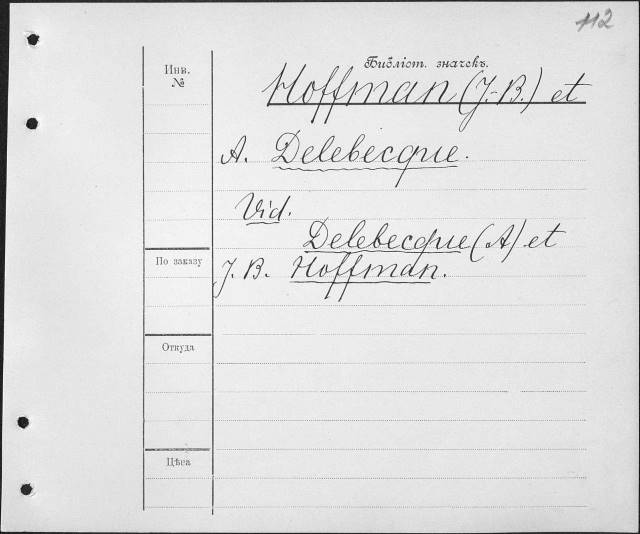 112
Инв.
№
Библіот. значекъ.
Hoffman (J.-B.) et
A. Delebecque.
Vid.
Delebecque (A) et
По заказу
J. B. Hoffman.
Откуда
Цѣна